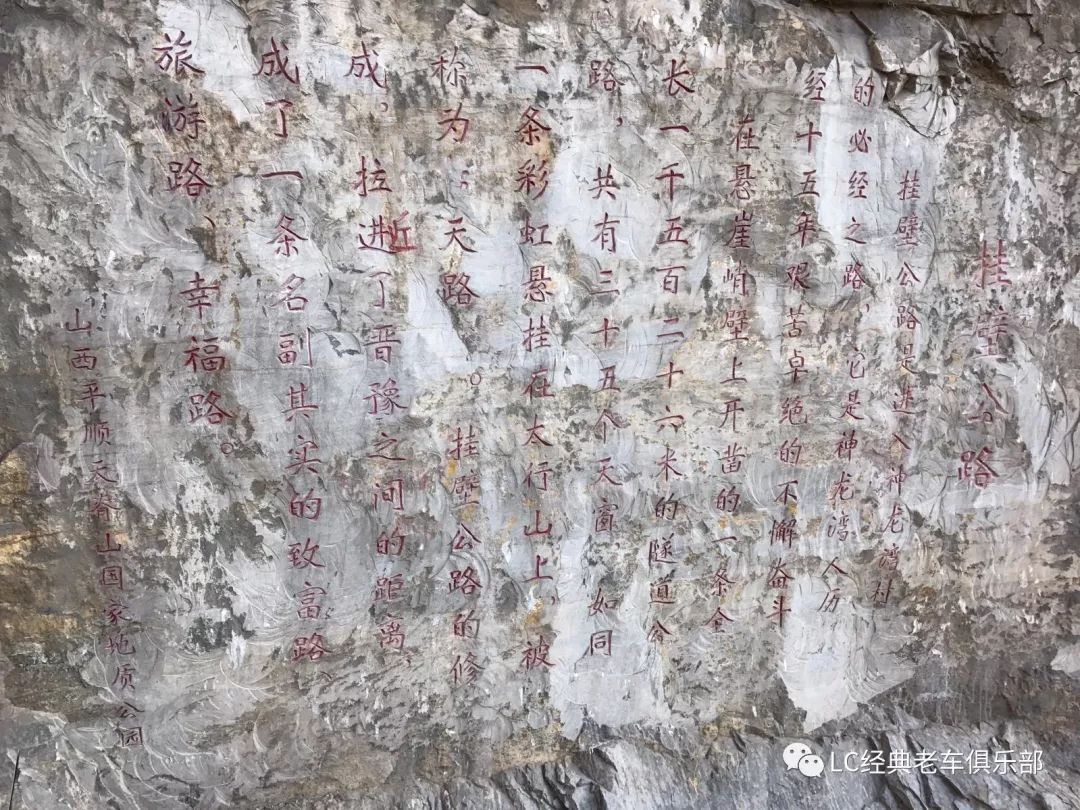 挂壁公路
挂壁公路是进入神龙湾村
的必经之路，它是神龙湾人历
经十五年艰苦卓绝的不懈奋斗
在悬崖峭壁上开凿的一条全
长一千五百二十六米的隧道公
路，共有三十五个天窗如同
一条彩虹悬挂在太行山上，被
称为：天路。挂壁公路的修
成，拉进近了晋豫之间的距离，
成了一条名副其实的致富路、
旅游路、幸福路。
山西平顺天脊山国家地质公园
LC经典老车俱乐部